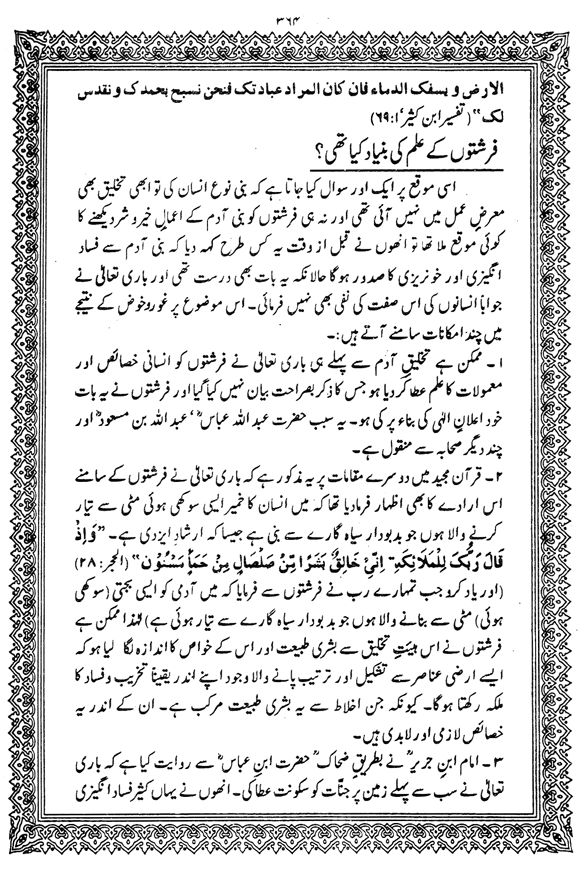 ۳۶۴
الارض و یسفک الدماء فان کان المراد عبادتک فنحن نسبح بحمدک و نقدس
لک“ (تفسیر ابن کثیر‘ ۱:۶۹)
فرشتوں کے علم کی بنیاد کیا تھی؟
اسی موقع پر ایک اور سوال کیا جاتا ہے کہ بنی نوع انسان کی تو ابھی تخلیق بھی
معرضِ عمل میں نہیں آئی تھی اور نہ ہی فرشتوں کو بنی آدم کے اعمالِ خیر و شر دیکھنے کا
کوئی موقع ملا تھا تو انھوں نے قبل از وقت یہ کس طرح کہہ دیا کہ بنی آدم سے فساد
انگیزی اور خونریزی کا صدور ہو گا حالانکہ یہ بات بھی درست تھی اور باری تعالیٰ نے
جواباً انسانوں کی اس صفت کی نفی بھی نہیں فرمائی۔ اس موضوع پر غور و خوض کے نتیجے
میں چند امکانات سامنے آتے ہیں:۔
۱۔ ممکن ہے تخلیقِ آدم سے پہلے ہی باری تعالیٰ نے فرشتوں کو انسانی خصائص اور
معمولات کا علم عطا کر دیا ہو جس کا ذکر بصراحت بیان نہیں کیا گیا اور فرشتوں نے یہ بات
خود اعلانِ الٰہی کی بناء پر کی ہو۔ یہ سبب حضرت عبد اللہ عباسؓ‘ عبد اللہ بن مسعودؓ اور
چند دیگر صحابہ سے منقول ہے۔
۲۔ قرآن مجید میں دوسرے مقامات پر یہ مذکور ہے کہ باری تعالیٰ نے فرشتوں کے سامنے
اس ارادے کا بھی اظہار فرما دیا تھا کہ میں انسان کا خمیر ایسی سوکھی ہوئی مٹی سے تیار
کرنے والا ہوں جو بدبودار سیاہ گارے سے بنی ہے جیسا کہ ارشادِ ایزدی ہے۔ ”وَاِذْ
قَالَ رَبُّکَ لِلْمَلَائِکَۃِ اِنِّیْ خَالِقٌ بَشَرًا مِّنْ صَلْصَالٍ مِنْ حَمَأٍ مَسْنُوْنٍ“ (الحجر: ۲۸)
(اور یاد کرو جب تمہارے رب نے فرشتوں سے فرمایا کہ میں آدمی کو ایسی بجتی (سوکھی
ہوئی) مٹی سے بنانے والا ہوں جو بدبودار سیاہ گارے سے تیار ہوئی ہے) لہٰذا ممکن ہے
فرشتوں نے اس ہیئتِ تخلیق سے بشری طبیعت اور اس کے خواص کا اندازہ لگا لیا ہو کہ
ایسے ارضی عناصر سے تشکیل اور ترتیب پانے والا وجود اپنے اندر یقیناً تخریب و فساد کا
ملکہ رکھتا ہو گا۔ کیونکہ جن اخلاط سے یہ بشری طبیعت مرکب ہے۔ ان کے اندر یہ
خصائص لازمی اور لابدی ہیں۔
۳۔ امام ابنِ جریرؒ نے بطریقِ ضحاکؒ حضرت ابنِ عباسؓ سے روایت کیا ہے کہ باری
تعالیٰ نے سب سے پہلے زمین پر جنّات کو سکونت عطا کی۔ انھوں نے یہاں کثیر فساد انگیزی